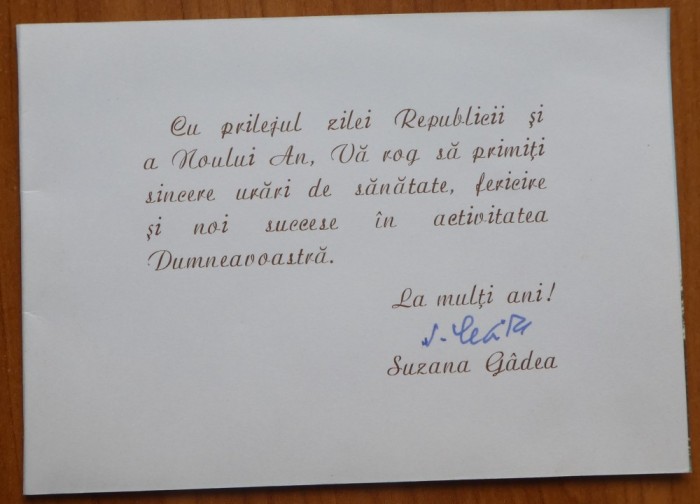 Cu prilejul zilei Republicii şi
a Noului An, Vă rog să primiţi
sincere urări de sănătate, fericire
şi noi succese în activitatea
Dumneavoastră.
La mulţi ani!
Suzana Gâdea